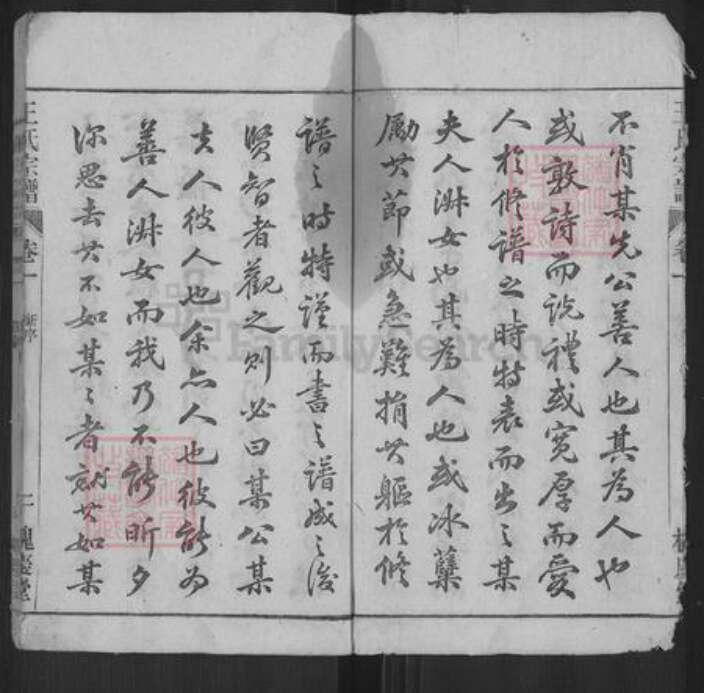 不肖某先公善人也其為人也
或敦詩而說禮或寬厚而愛
人於修譜之時特表而出之某
夫人淑女也其為人也或冰蘗
勵其節或急難捐其軀於修
譜之時特謹而書之譜成之後
賢智者觀之則必曰某公某
夫人彼人也余亦人也彼能為
善人淑女而我乃不能昕夕
深思去其不如某某者就其如某
王氏宗譜
卷一
新序
二
槐慶堂
FamilySearch